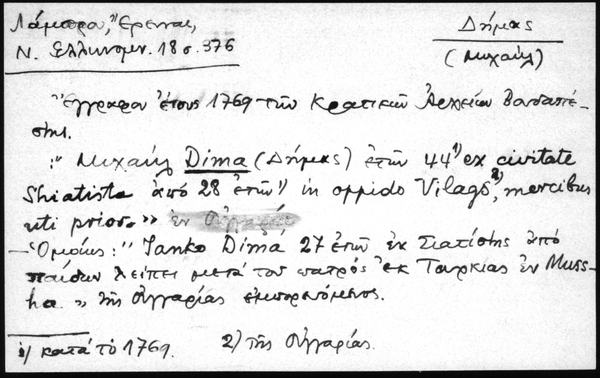 Λάμπρου, "Ερευναι,
Ν. Ελλινομν. 18 σ. 376
Δήμας
(Μιχαήλ)
"Εγγραφον έτους 1769 των Κρατικών Αρχείων Βουδαπέ-
στης.
:" Μιχαήλ Dima (Δήμας) ετών 44¹⁾ ex civitate
Shiatista από 28 ετών¹⁾ in oppido Vilagos²⁾, mercibus
uti prior. » εν Ουγγαρία
— Ομοίως: " Janko Dimá 27 ετών εκ Σιατίστης από
παίδων λείπει μετά του πατρός εκ Τουρκίας εν Muss-
ha. » της Ουγγαρίας εμπορευόμενος.
1) κατά το 1769.
2) της Ουγγαρίας.